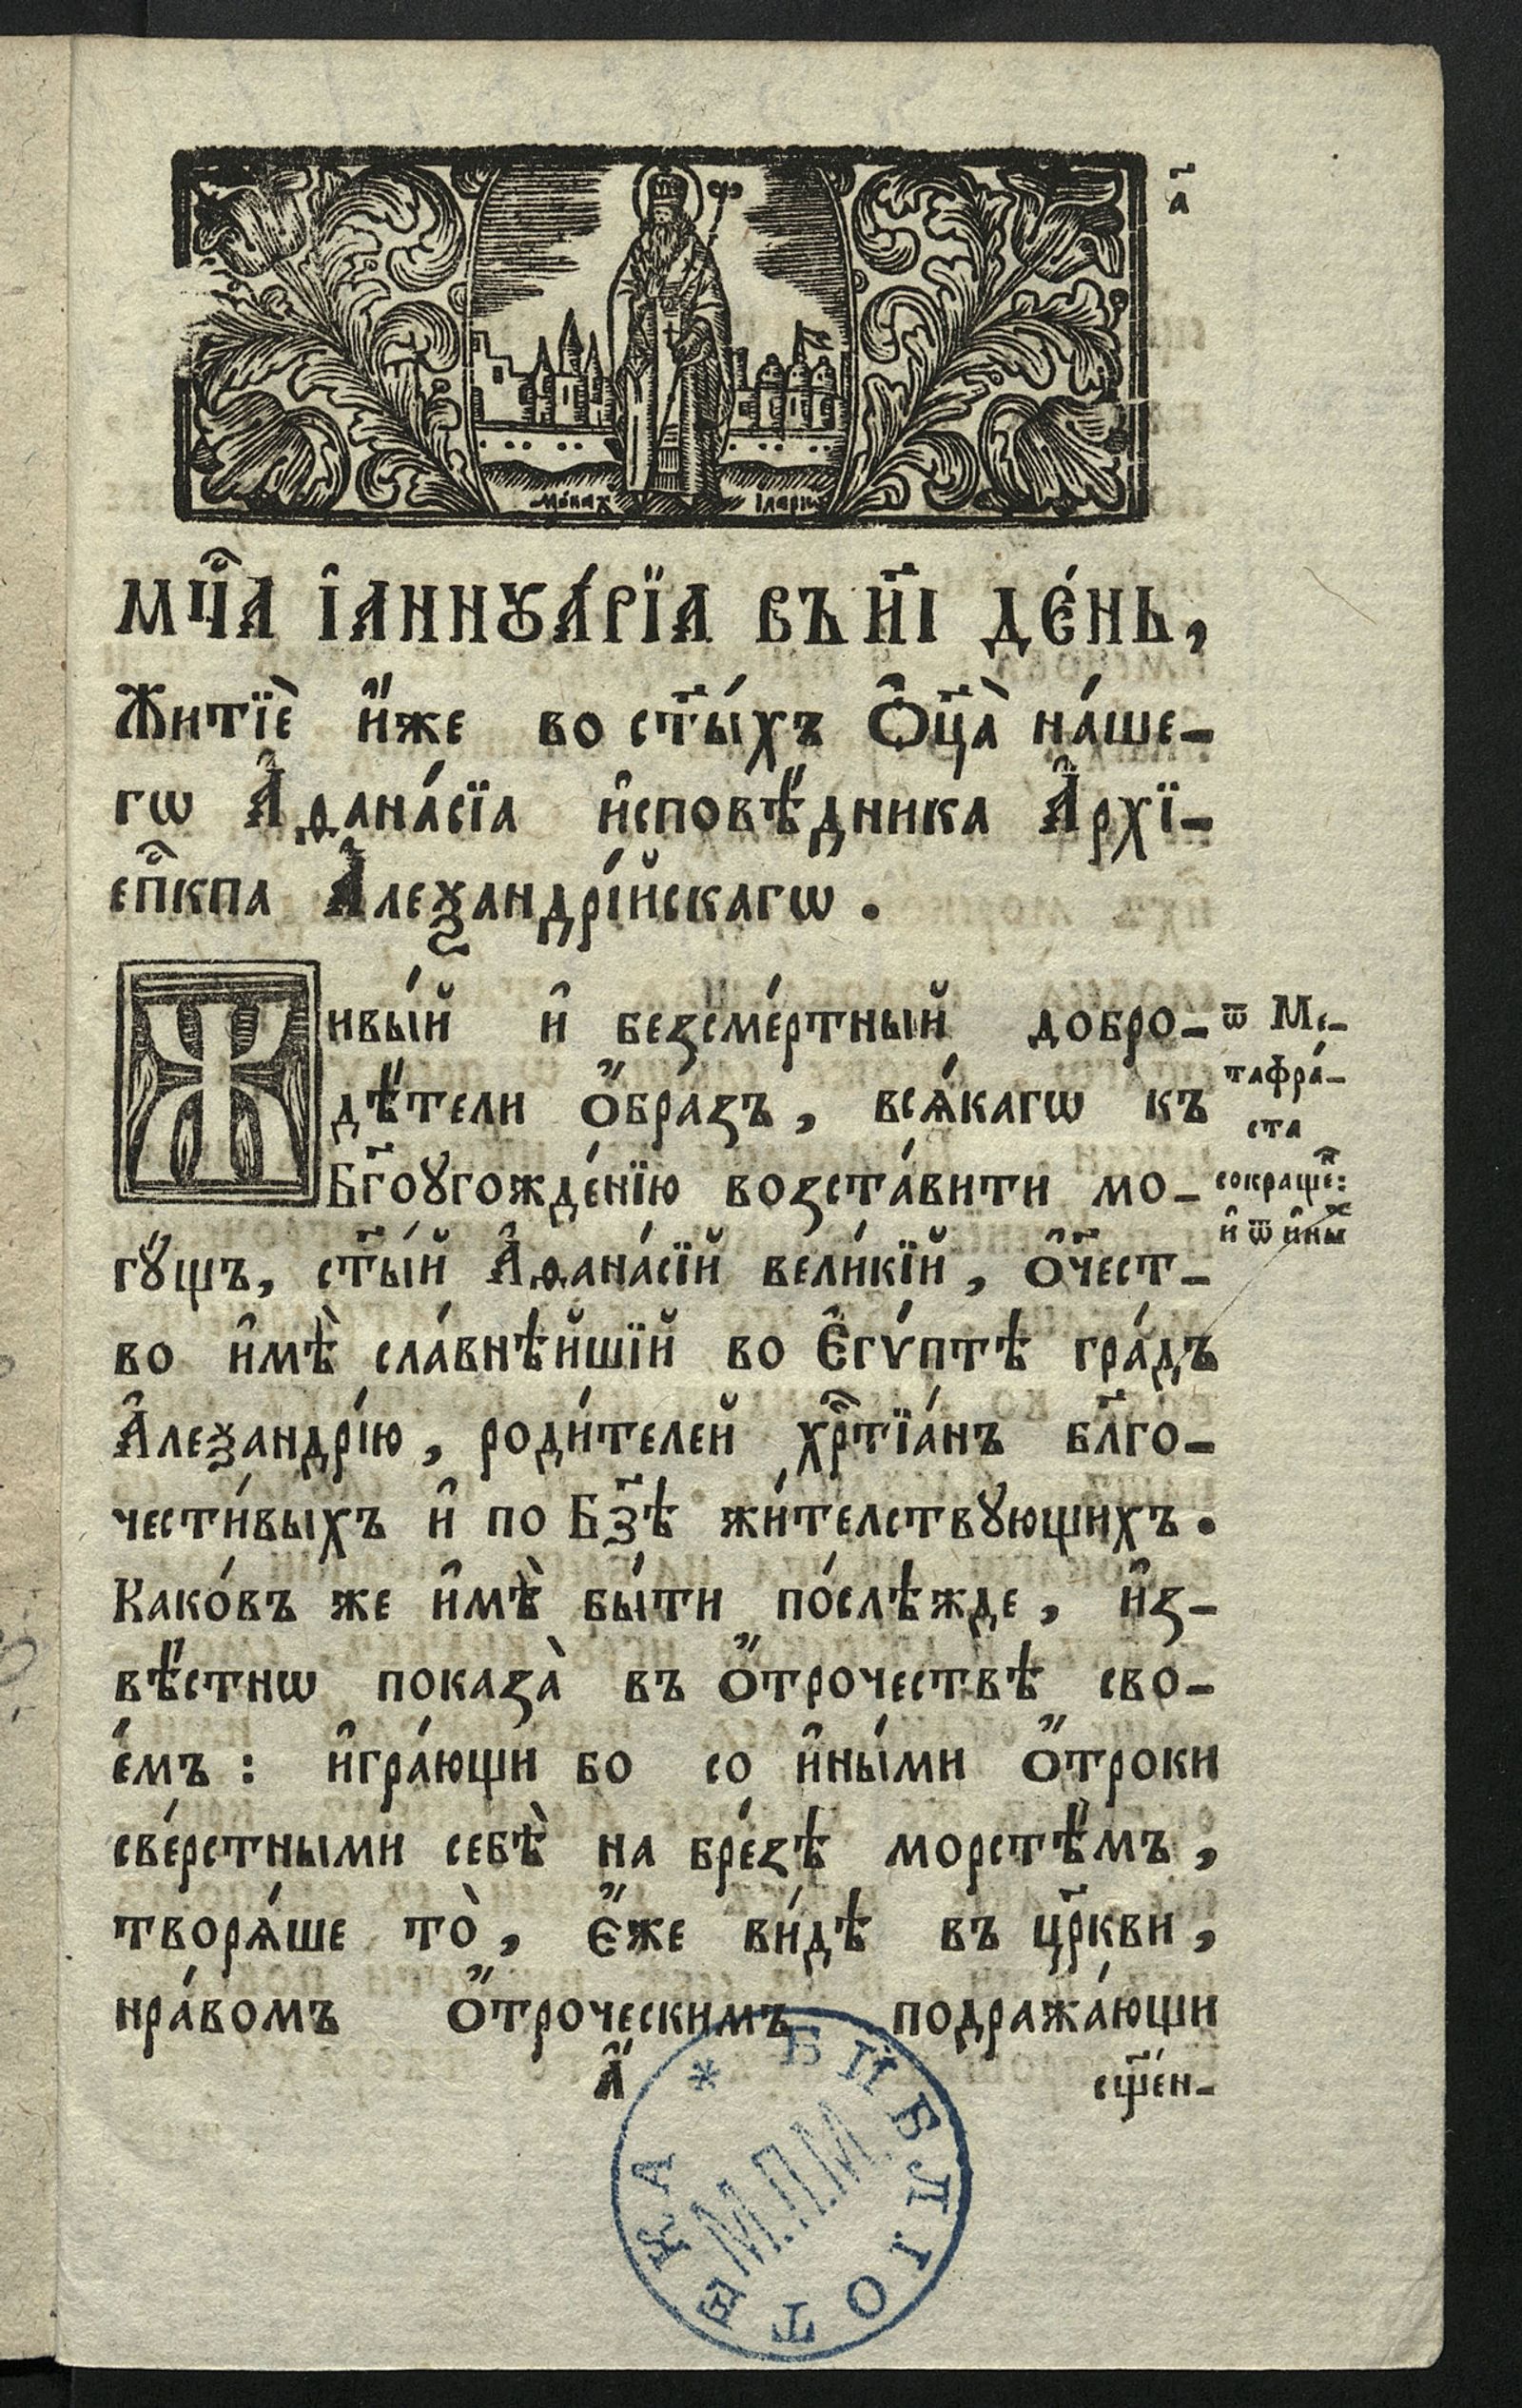 а҃
Мона́х Іларїѡ
МЦ҇А І҆АННꙊА́РЇА ВЪ И҃І ДЕ́НЬ,
Житїѐ и҆́же во ст҃ы́хъ Ѻ҆ц҃а̀ на́ше-
гѡ А҆ѳана́сїа и҆сповѣ́дника А҆рхї-
еп҇кпа А҆леѯандрі́йскагѡ.
Живы́й и҆ безсме́ртный добро-
дѣ́тели ѻ҆́бразъ, всѧ́кагѡ къ
Бг҃оꙋгожде́нїю возста́вити мо-
гꙋ́щъ, ст҃ы́й А҆ѳана́сїй вели́кїй, ѻ҆ч҃ест-
во и҆мѣ̀ сла́внѣйшїй во Є҆гѵ́птѣ гра́дъ
А҆леѯандрі́ю, роди́телей хр҇тїа́нъ бл҃го-
чести́выхъ и҆ по Бз҃ѣ жи́телствꙋющихъ.
Како́въ же и҆мѣ̀ бы́ти по́слѣжде, и҆з-
вѣ́стнѡ показа̀ въ ѻ҆́трочествѣ сво-
е́мъ: и҆гра́ющи бо со и҆ны́ми ѻ҆́троки
све́рстными себѣ̀ на бре́зѣ морстѣ́мъ,
творѧ́ше то̀, є҆́же ви́дѣ въ цр҃кви,
нра́вомъ ѻ҆́троческимъ подража́ющи
А҆ сщ҃е́н-
ѿ Ме-
тафра́-
ста
сокраще҃н:
и҆ ѿ и҆ны́х
БИБЛІОТЕКА *
М.П.М.